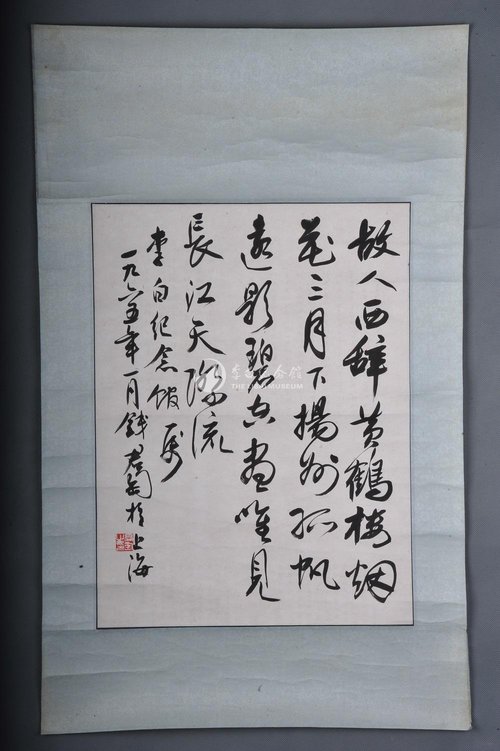 故人西辞黄鹤楼烟
花三月下揚州孤帆
遠影碧空盡唯見
長江天際流
李白纪念馆属
一九六五年一月錢君匋於上海
李白纪念館
THE LIBAI MUSEUM